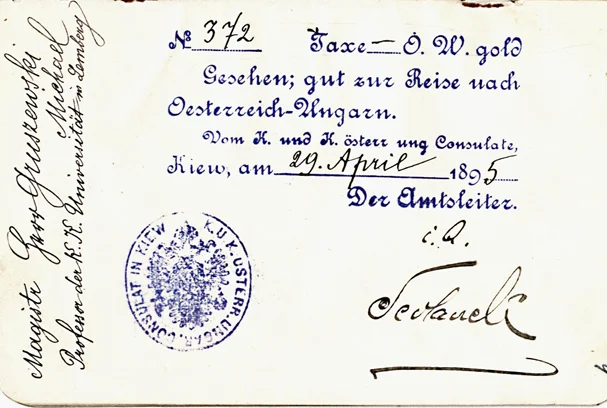 № 372 Taxe — Ö. W. gold
Gesehen; gut zur Reise nach
Oesterreich-Ungarn.
Vom K. und K. österr ung Consulate,
Kiew, am 29. April 1895
Der Amtsleiter.
K. U. K. ÖSTERR. UNGAR. CONSULAT IN KIEW
Magistr Herr Gruszewski
Michael
Professor der K. K. Universität in Lemberg